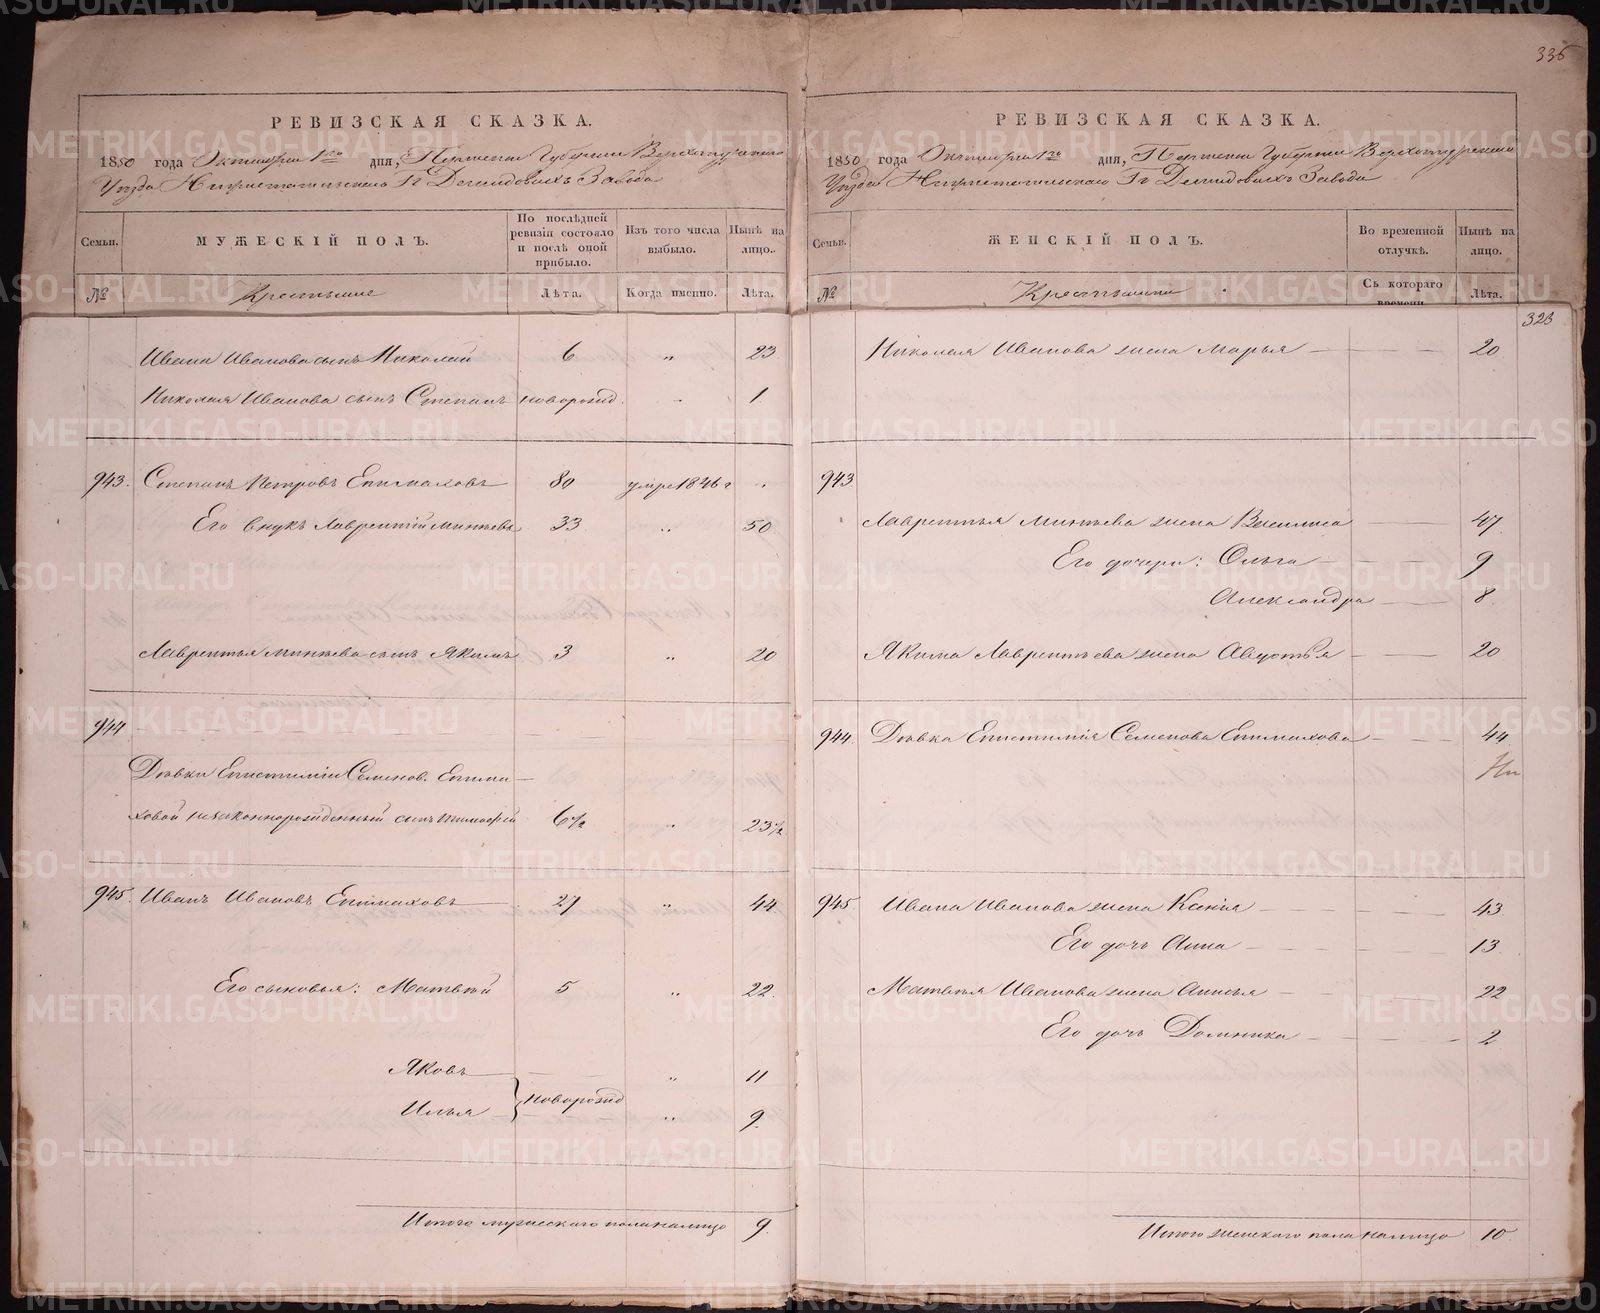 336
РЕВИЗСКАЯ СКАЗКА.
1850 года Октября 1го дня, Пермской Губернии Верхотурскаго
Уезда Г. Демидовыхъ Завода
Семьи.
МУЖЕСКІЙ ПОЛЪ.
По последней ревизіи состояло и после оной прибыло.
Изъ того числа выбыло.
Ныне на лицо.
№
Крестьяне
Лѣта.
Когда именно.
Лѣта.
Ивана Иванова сынъ Николай 6 " 23
Николая Иванова сынъ Степанъ новорожд. " 1
943. Степанъ Петровъ Епимаховъ 80 умре 1846 г "
Его внукъ Лаврентій Минѣевъ 33 " 50
Лаврентья Минѣева сынъ Якимъ 3 " 20
944
Дѣвки Епистиміи Семенов. Епима-
ховой незаконнорожденный сынъ Тимофей 6½ " 23½
945. Иванъ Ивановъ Епимаховъ 27 " 44
Его сыновья: Матвѣй 5 " 22.
Яковъ " 11
новорожд
Илья " 9.
Итого мужескаго пола налицо 9.
РЕВИЗСКАЯ СКАЗКА.
1850 года Октября 1го дня, Пермской Губернии Верхотурскаго
Уезда Г. Демидовыхъ Завода
Семьи.
ЖЕНСКІЙ ПОЛЪ.
Во временной отлучкѣ.
Ныне на лицо.
№
Крестьянки
Съ котораго времени
Лѣта.
323
Николая Иванова жена Марья 20
943
Лаврентья Минѣева жена Василиса 47
Его дочери: Ольга 9
Александра 8
Якима Лаврентьева жена Авдотья 20
944. Дѣвка Епистимія Семенова Епимахова 44
945. Ивана Иванова жена Ксенія 43
Его дочь Анна 13
Матвѣя Иванова жена Анисья 22
Его дочь Домника 2
Итого женскаго пола налицо 10
METRIKI.GASO-URAL.RU